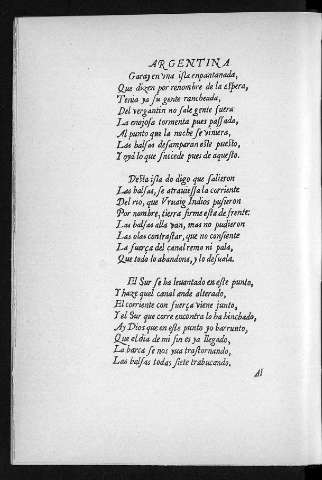 ARGENTINA
Garay en vna isla enpantanada,
Que dizen por renombre de la espera,
Tenia ya su gente rancheada,
Del vergantin no sale gente fuera
La enojosa tormenta pues passada,
Al punto que la noche se viniera,
Las balsas desamparan este puesto,
Y oyá lo que succede pues de aquesto.
Desta isla do digo que salieron
Las balsas, se atrauiessa la corriente
Del rio, que Vruaig Indios pusieron
Por nombre, tierra firme esta de frente:
Las balsas alla van, mas no pudieron
Las olas contrastar, que no consiente
La fuerça del canal remo ni pala,
Que todo lo abandona, y lo desuala.
El Sur se ha leuantado en este punto,
Y haze quel canal ande alterado,
El corriente con fuerça viene junto,
Y el Sur que corre encontra lo ha hinchado,
Ay Dios que en este punto yo barrunto,
Que el dia de mi fin es ya llegado,
La barca se nos yua trastornando,
Las balsas todas siete trabucando,
Al